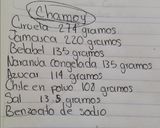 Chamoy
Ciruela 274 gramos
Jamaica 220 gramos
Betabel 135 gramos
Naranja congelada 135 gramos
Azucar 114 gramos
Chile en polvo 102 gramos
Sal 13.5 gramos
Benzoato de sodio